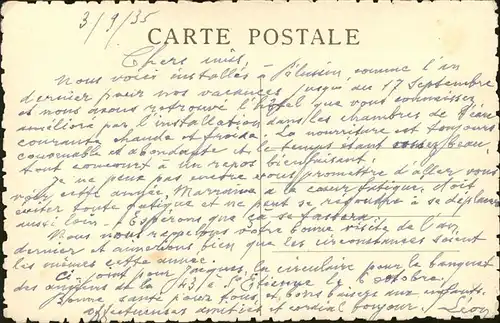 3/9/35
CARTE POSTALE
Chers amis,
Nous voici installés à Pélussin, comme l'an
dernier pour nos vacances jusqu'au 17 Septembre
et nous avons retrouvé l'hôtel que vous connaissez
amélioré par l'installation dans les chambres de l'eau
courante chaude et froide. La nourriture est toujours
convenable et abondante et le temps étant assez beau,
tout concourt à un repos bienfaisant.
Je ne peux pas encore vous promettre d'aller vous
voir cette année. Marraine a le cœur fatigué, doit
éviter toute fatigue et ne peut se résoudre à se déplacer
aussi loin. Espérons que ça se passera.
Nous nous rappelons votre bonne visite de l'an
dernier et aimerions bien que les circonstances soient
les mêmes cette année.
Ci-joint pour Jacques, la circulaire pour le banquet
des anciens de la à St Etienne le 6 octobre.
Bonne santé pour tous et bons baisers aux enfants.
Affectueuses amitiés et cordial bonjour. Léon